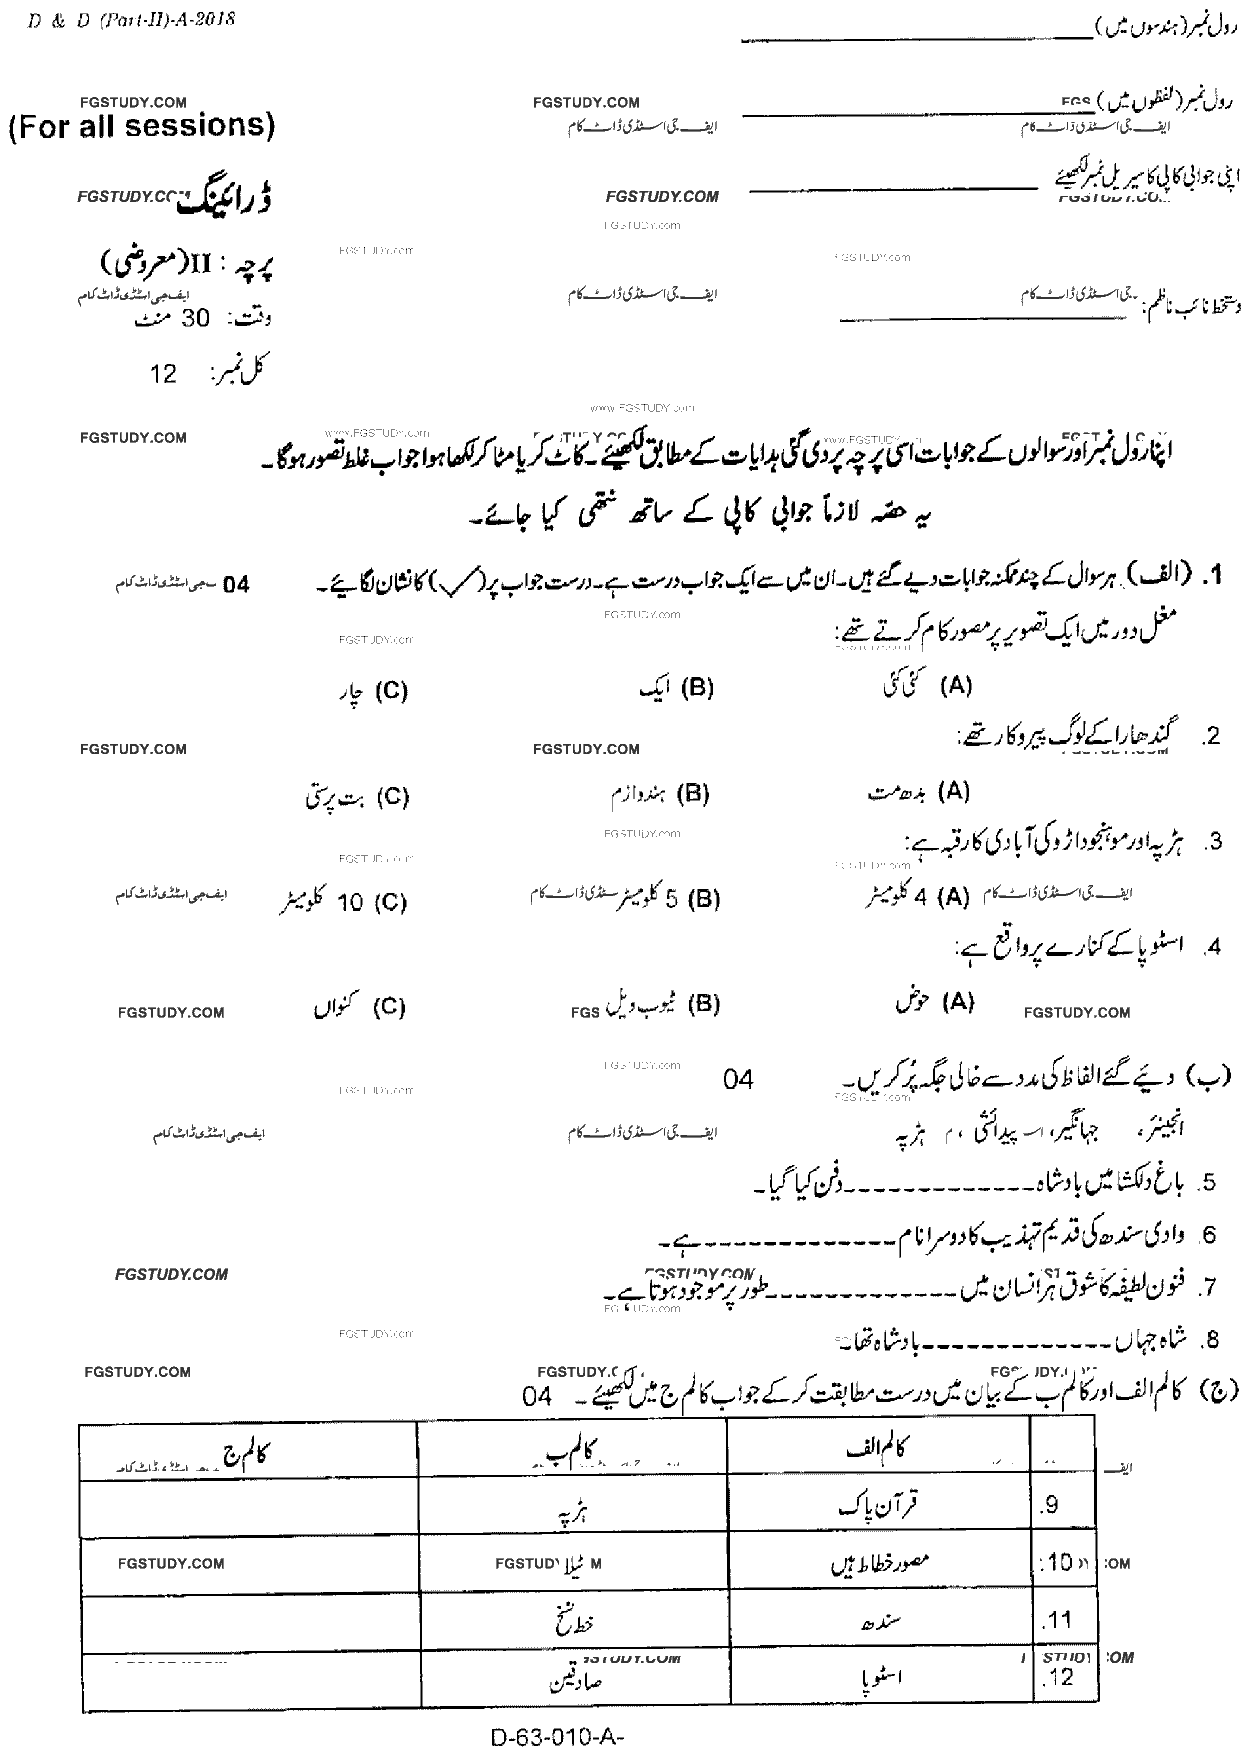 D & D (Part-II)-A-2018
رول نمبر (ہندسوں میں)
رول نمبر (لفظوں میں)
FGSTUDY.COM FGSTUDY.COM FGS
(For all sessions)
ایف جی اسٹڈی ڈاٹ کام ایف جی اسٹڈی ڈاٹ کام
اپنی جوابی کاپی کا سیریل نمبر لکھیئے
FGSTUDY.COM FGSTUDY.COM
ڈرائینگ
FGSTUDY.com
FGSTUDY.com FGSTUDY.com
پرچہ : II (معروضی)
ایف جی اسٹڈی ڈاٹ کام ایف جی اسٹڈی ڈاٹ کام جی اسٹڈی ڈاٹ کام
دستخط نائب ناظم:
وقت: 30 منٹ
کل نمبر: 12
www.FGSTUDY.com
FGSTUDY.COM www.FGSTUDY.com www.FGSTUDY.com
اپنا رول نمبر اور سوالوں کے جوابات اسی پرچہ پر دی گئی ہدایات کے مطابق لکھیئے۔ کاٹ کر یا مٹا کر لکھا ہوا جواب غلط تصور ہوگا۔
یہ حصّہ لازماً جوابی کاپی کے ساتھ نتھی کیا جائے۔
1. (الف) ہر سوال کے چند ممکنہ جوابات دیے گئے ہیں۔ ان میں سے ایک جواب درست ہے۔ درست جواب پر (✓) کا نشان لگائیے۔ 04
مغل دور میں ایک تصویر پر مصور کام کرتے تھے:
FGSTUDY.com FGSTUDY.com
(A) کئی کئی (B) ایک (C) چار
2. گندھارا کے لوگ پیروکار تھے:
FGSTUDY.COM FGSTUDY.COM
(A) بدھ مت (B) ہندوازم (C) بت پرستی
3. ہڑپہ اور موہنجوداڑو کی آبادی کا رقبہ ہے:
FGSTUDY.com FGSTUDY.com FGSTUDY.com
(A) 4 کلومیٹر (B) 5 کلومیٹر (C) 10 کلومیٹر
4. اسٹوپا کے کنارے پر واقع ہے:
(A) حوض (B) ٹیوب ویل (C) کنواں
FGSTUDY.COM FGS FGSTUDY.COM
(ب) دیئے گئے الفاظ کی مدد سے خالی جگہ پُر کریں۔ 04
FGSTUDY.com FGSTUDY.com FGSTUDY.com
انجینئر، جہانگیر، پیدائشی، ہڑپہ
ایف جی اسٹڈی ڈاٹ کام ایف جی اسٹڈی ڈاٹ کام
5. باغ دلکشا میں بادشاہ ------------- دفن کیا گیا۔
6. وادی سندھ کی قدیم تہذیب کا دوسرا نام -------------- ہے۔
FGSTUDY.COM FGSTUDY.COM
7. فنون لطیفہ کا شوق ہر انسان میں -------------- طور پر موجود ہوتا ہے۔
FGSTUDY.com FGSTUDY.com
8. شاہ جہاں -------------- بادشاہ تھا۔
FGSTUDY.COM
(ج) کالم الف اور کالم ب کے بیان میں درست مطابقت کر کے جواب کالم ج میں لکھیئے۔ 04
کالم الف کالم ب کالم ج
9. قرآن پاک ہڑپہ
10. مصور خطاط ہیں ٹیلا
FGSTUDY.COM
11. سندھ خط نسخ
12. اسٹوپا صادقین
D-63-010-A-